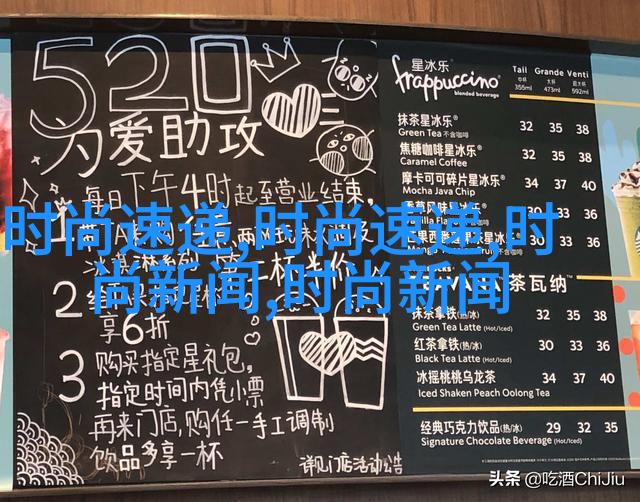 520
为爱助攻
每日下午4时起至营业结束,
2
享6折
3 购买指定星礼包,
指定时间内凭小票
再来门店,购任一手工调制
饮品多享一杯
详见门店活动公告
时尚速递,时尚速递,时
尚新闻,时尚新闻
星冰乐®
frappuccino®
blended beverage
Tall Grande Venti
中杯 大杯 超大杯
355ml 473ml 592ml
抹茶星冰乐® 32 35 38
Green Tea 不含咖啡
焦糖咖啡星冰乐® 32 35 38
Caramel Coffee
摩卡可可碎片星冰乐® 34 37 40
Mocha Java Chip
风味 30 33 36
33 36
茶瓦纳™
抹茶拿铁(热/冰) 32 35 38
Green Tea Latte (Hot/Iced)
红茶拿铁(热/冰) 30 33 36
Black Tea Latte (Hot/Iced)
冰摇桃桃乌龙茶 34 37 40
Iced Shaken Peach Oolong Tea
经典巧克力饮品(热/冰) 29 32 35
Signature Chocolate Beverage (Hot/Iced)
头条 @吃酒ChiJiu